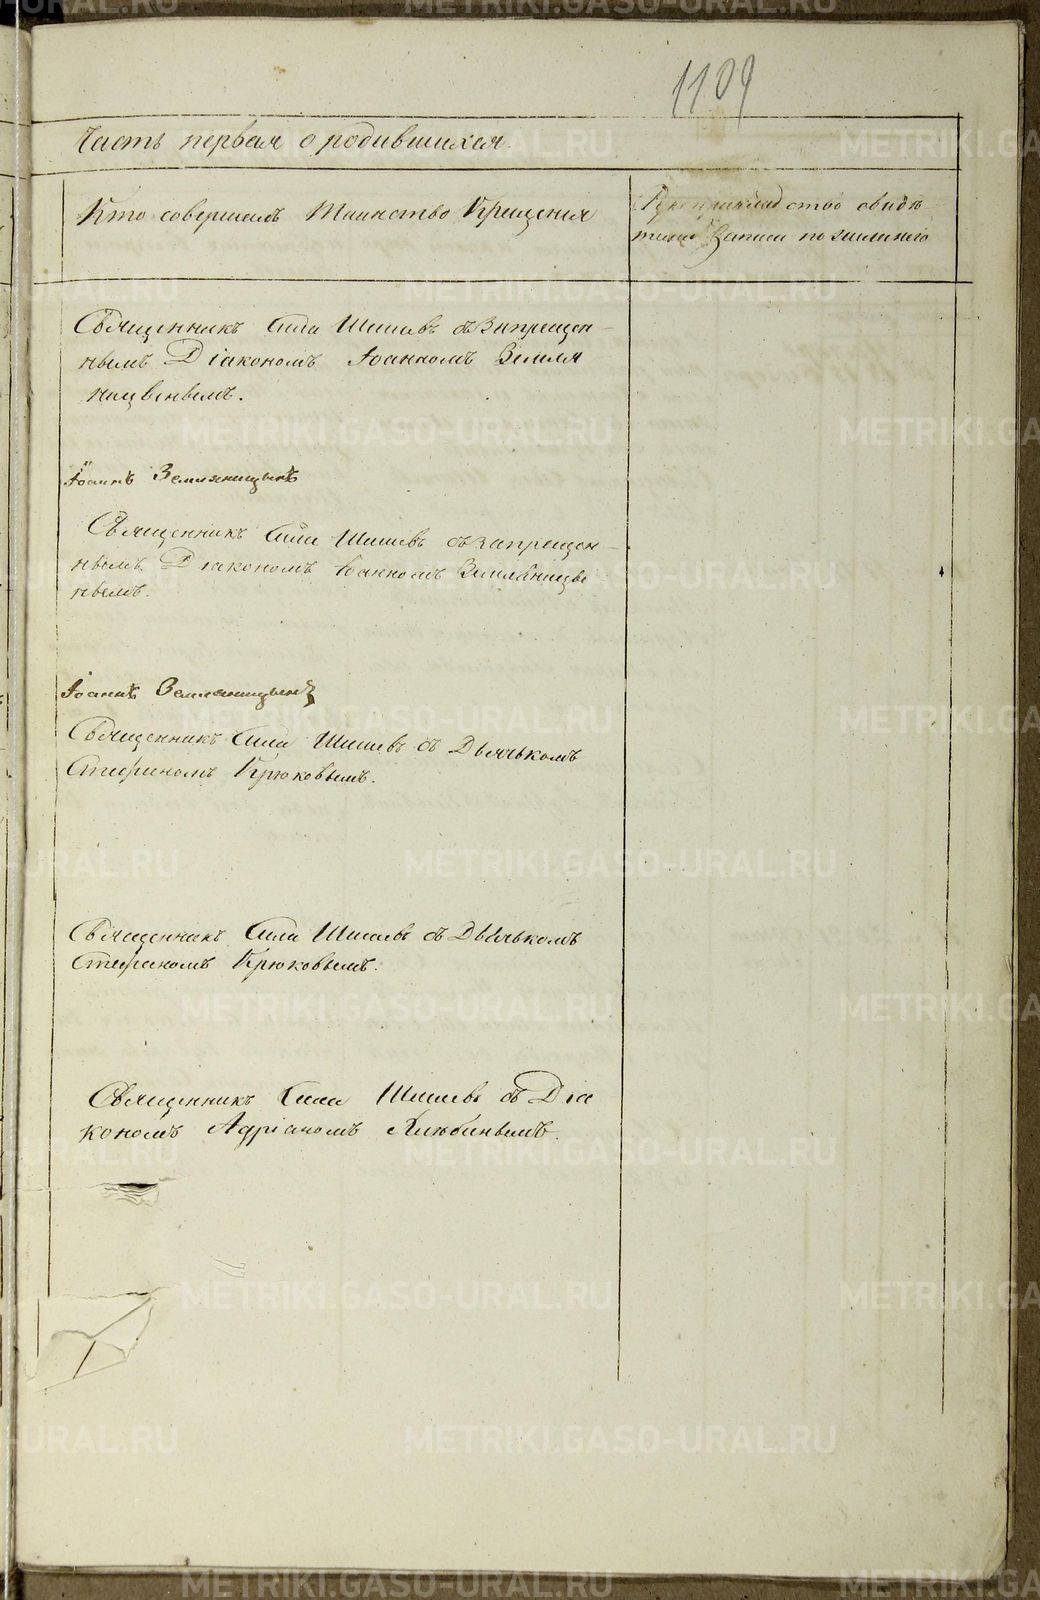 1109
Часть первая о родившихся.
Кто совершалъ Таинство Крещения
Рукоприкладство свидѣ
телей Записи по желанiю
Священникъ Сила Шишевъ съ Запрещен-
нымъ Дiакономъ Iоанномъ Земля
ницынымъ.
Iоаннъ Земляницынъ
Священникъ Сила Шишевъ съ запрещен-
нымъ Дiакономъ Iоанномъ Земляницы
нымъ.
Iоаннъ Земляницынъ
Священникъ Сила Шишевъ съ Дьячькомъ
Стефаномъ Крюковымъ.
Священникъ Сила Шишевъ съ Дьячькомъ
Стефаномъ Крюковымъ.
Священникъ Сила Шишевъ съ Дiа
кономъ Адрiаномъ
METRIKI.GASO-URAL.RU